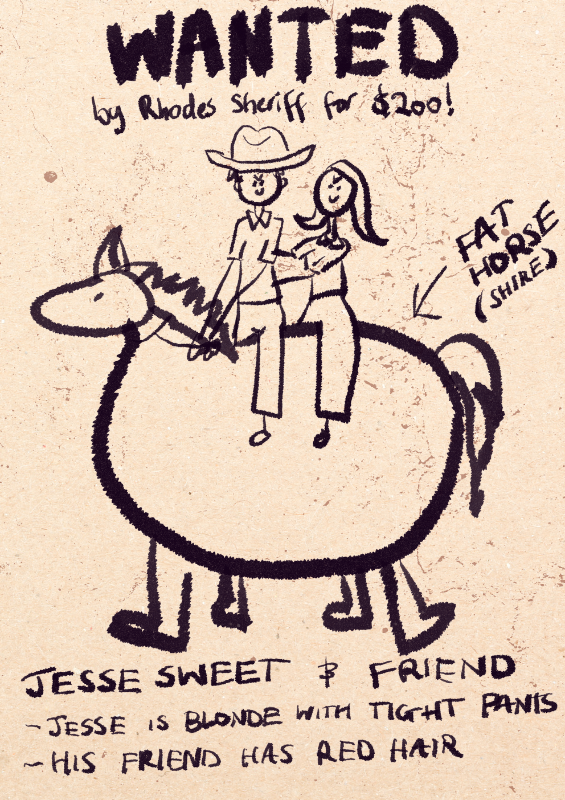 WANTED
by Rhodes Sheriff for $200!
FAT
HORSE
(SHIRE)
JESSE SWEET & FRIEND
~JESSE IS BLONDE WITH TIGHT PANTS
~HIS FRIEND HAS RED HAIR